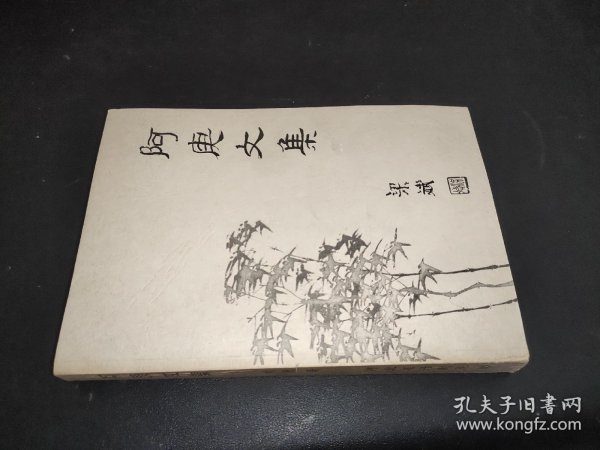 阿庚文集
梁斌
孔夫子旧书网
www.kongfz.com